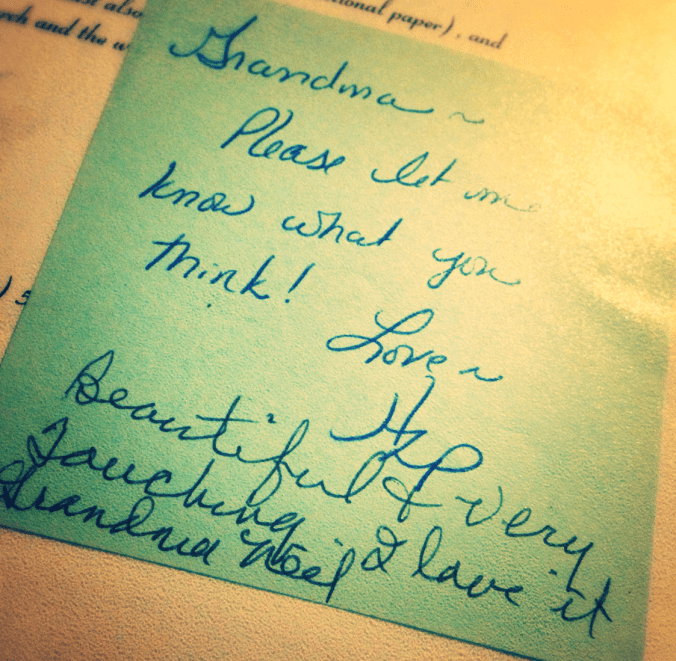 also
tional paper), and
rch and the w
Grandma ~
Please let me
know what you
think!
Love ~
Beautiful & very
Touching I love it
Grandma Noel